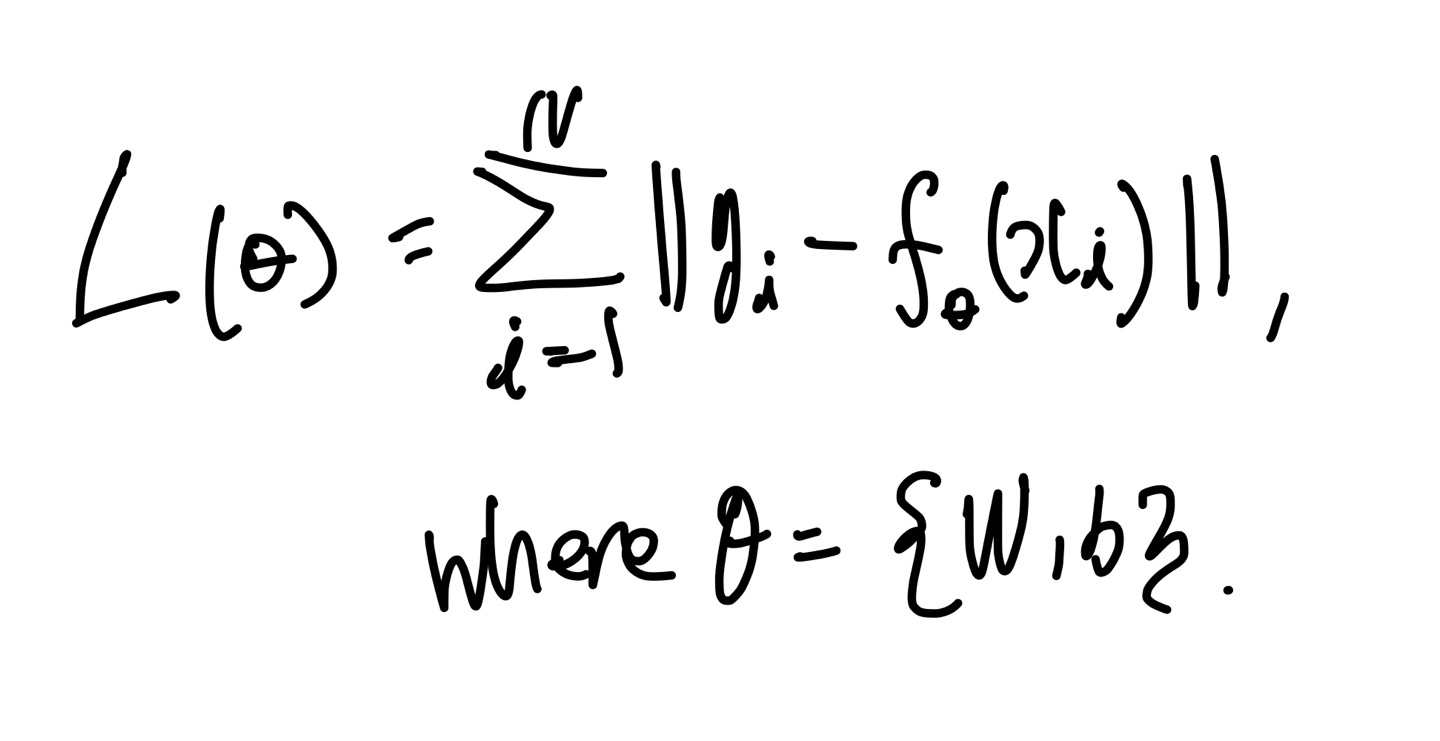 L(θ) = ∑_{i=1}^{N} ‖y_i − f_θ(x_i)‖,
where θ = {W, b}.